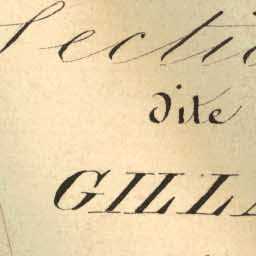 Secti
dite
GILLA